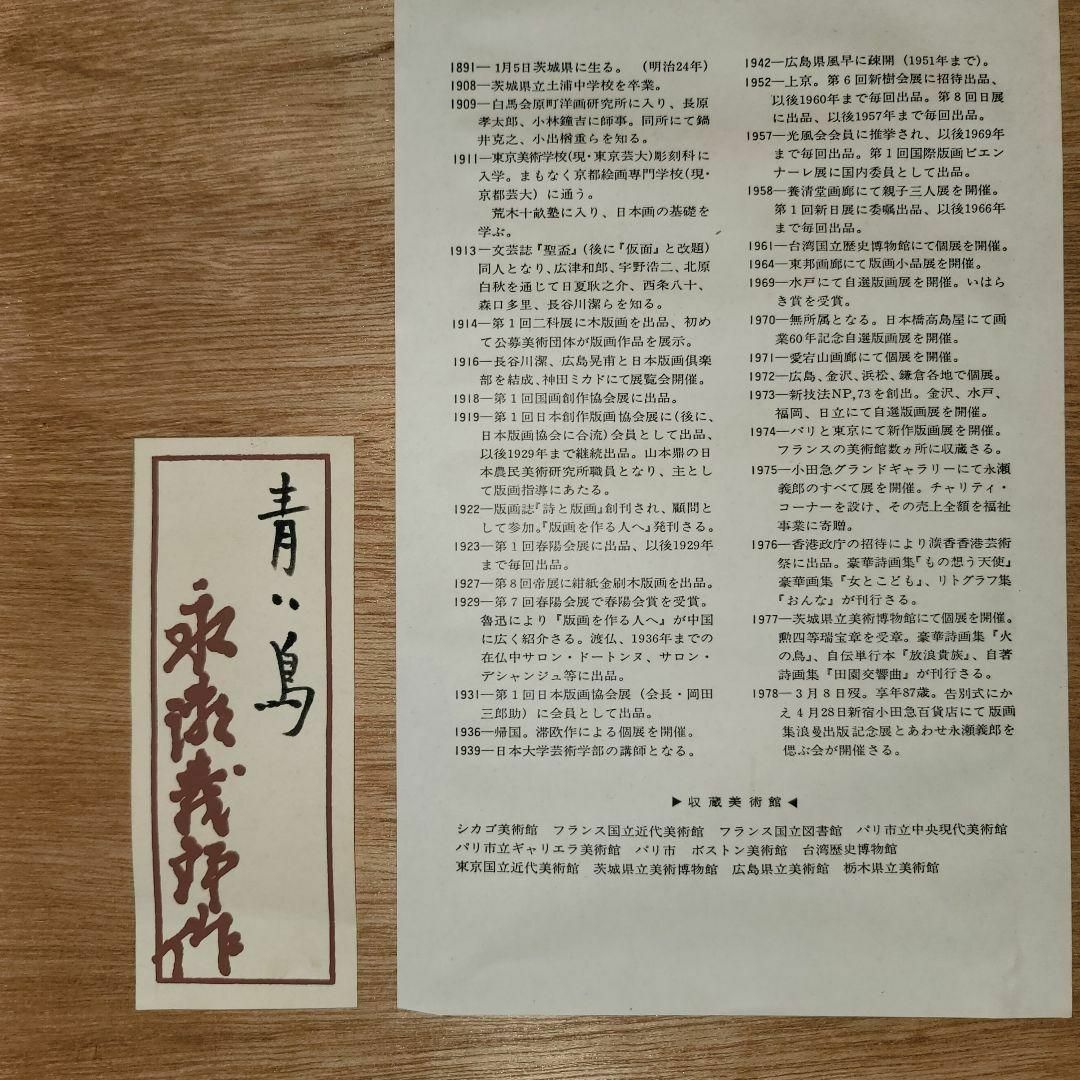 1891—1月5日茨城県に生る。（明治24年）
1908—茨城県立土浦中学校を卒業。
1909—白馬会原町洋画研究所に入り、長原
孝太郎、小林鐘吉に師事。同所にて鍋
井克之、小出楢重らを知る。
1911—東京美術学校(現・東京芸大)彫刻科に
入学。まもなく京都絵画専門学校(現・
京都芸大）に通う。
荒木十畝塾に入り、日本画の基礎を
学ぶ。
1913—文芸誌『聖盃』(後に『仮面』と改題)
同人となり、広津和郎、宇野浩二、北原
白秋を通じて日夏耿之介、西条八十、
森口多里、長谷川潔らを知る。
1914—第1回二科展に木版画を出品、初め
て公募美術団体が版画作品を展示。
1916—長谷川潔、広島晃甫と日本版画倶楽
部を結成、神田ミカドにて展覧会開催。
1918—第1回国画創作協会展に出品。
1919—第1回日本創作版画協会展に(後に、
日本版画協会に合流)会員として出品、
以後1929年まで継続出品。山本鼎の日
本農民美術研究所職員となり、主とし
て版画指導にあたる。
1922—版画誌『詩と版画』創刊され、顧問と
して参加。『版画を作る人へ』発刊さる。
1923—第1回春陽会展に出品、以後1929年
まで毎回出品。
1927—第8回帝展に紺紙金刷木版画を出品。
1929—第7回春陽会展で春陽会賞を受賞。
魯迅により『版画を作る人へ』が中国
に広く紹介さる。渡仏、1936年までの
在仏中サロン・ドートンヌ、サロン・
デシャンジュ等に出品。
1931—第1回日本版画協会展（会長・岡田
三郎助）に会員として出品。
1936—帰国。滞欧作による個展を開催。
1939—日本大学芸術学部の講師となる。
1942—広島県風早に疎開（1951年まで）。
1952—上京。第6回新樹会展に招待出品、
以後1960年まで毎回出品。第8回日展
に出品、以後1957年まで毎回出品。
1957—光風会会員に推挙され、以後1969年
まで毎回出品。第1回国際版画ビエン
ナーレ展に国内委員として出品。
1958—養清堂画廊にて親子三人展を開催。
第1回新日展に委嘱出品、以後1966年
まで毎回出品。
1961—台湾国立歴史博物館にて個展を開催。
1964—東邦画廊にて版画小品展を開催。
1969—水戸にて自選版画展を開催。いはら
き賞を受賞。
1970—無所属となる。日本橋高島屋にて画
業60年記念自選版画展を開催。
1971—愛宕山画廊にて個展を開催。
1972—広島、金沢、浜松、鎌倉各地で個展。
1973—新技法NP,73を創出。金沢、水戸、
福岡、日立にて自選版画展を開催。
1974—パリと東京にて新作版画展を開催。
フランスの美術館数ヵ所に収蔵さる。
1975—小田急グランドギャラリーにて永瀬
義郎のすべて展を開催。チャリティ・
コーナーを設け、その売上全額を福祉
事業に寄贈。
1976—香港政庁の招待により濱香香港芸術
祭に出品。豪華詩画集『もの想う天使』
豪華画集『女とこども』、リトグラフ集
『おんな』が刊行さる。
1977—茨城県立美術博物館にて個展を開催。
勲四等瑞宝章を受章。豪華詩画集『火
の鳥』、自伝単行本『放浪貴族』、自著
詩画集『田園交響曲』が刊行さる。
1978—3月8日歿。享年87歳。告別式にか
え4月28日新宿小田急百貨店にて版画
集浪曼出版記念展とあわせ永瀬義郎を
偲ぶ会が開催さる。
▶収蔵美術館◀
シカゴ美術館 フランス国立近代美術館 フランス国立図書館 パリ市立中央現代美術館
パリ市立ギャリエラ美術館 パリ市 ボストン美術館 台湾歴史博物館
東京国立近代美術館 茨城県立美術博物館 広島県立美術館 栃木県立美術館
青い鳥
永瀬義郎作